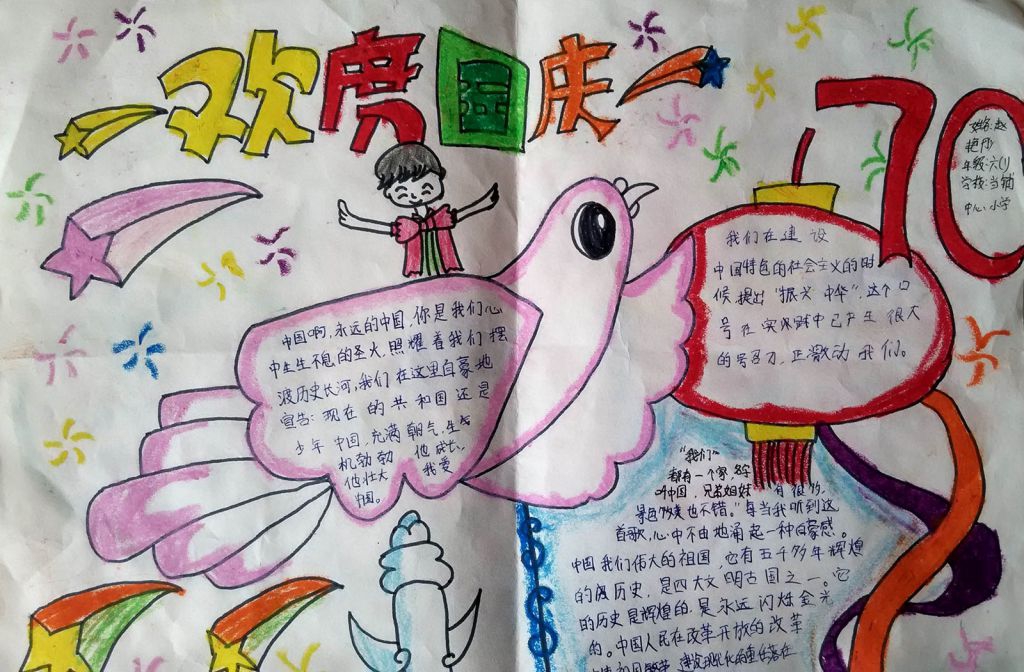 欢度国庆
70
姓名:赵
艳丹
年级:六(1)
学校:当铺
中心小学
我们在建设
中国特色的社会主义的时
候,提出"振兴中华",这个口
号在实践中已产生很大
的号召力,正激动我们。
中国啊,永远的中国,你是我们心
中生生不息的圣火,照耀着我们摆
渡历史长河,我们在这里自豪地
宣告:现在的共和国还是
少年中国,充满朝气,生
机勃勃 他成长,
他壮大 我爱
中国。
"我们
都有一个家,名字
叫中国,兄弟姐妹 有很多,
景色 也不错。"每当我听到这
首歌,心中不由地涌起一种自豪感。
中国我们伟大的祖国,它有五千多年辉煌
的 历史,是四大文明古国之一。它
的历史是辉煌的,是永远闪烁金光
的。中国人民在改革开放的改革